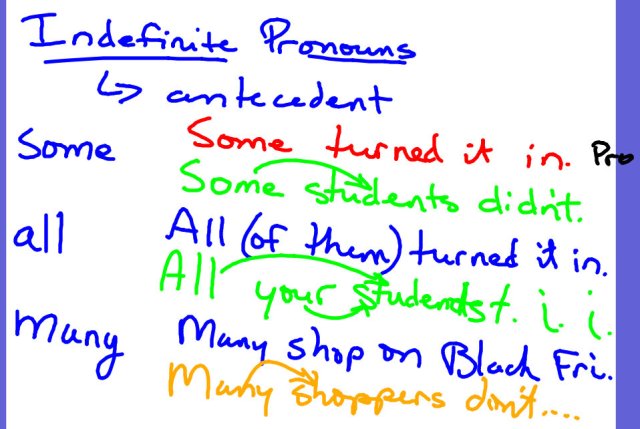 Indefinite Pronouns
↳ antecedent
Some Some turned it in. Pro
Some students didn't.
all All (of them) turned it in.
All your students t. i. i.
Many Many shop on Black Fri.
Many shoppers don't....